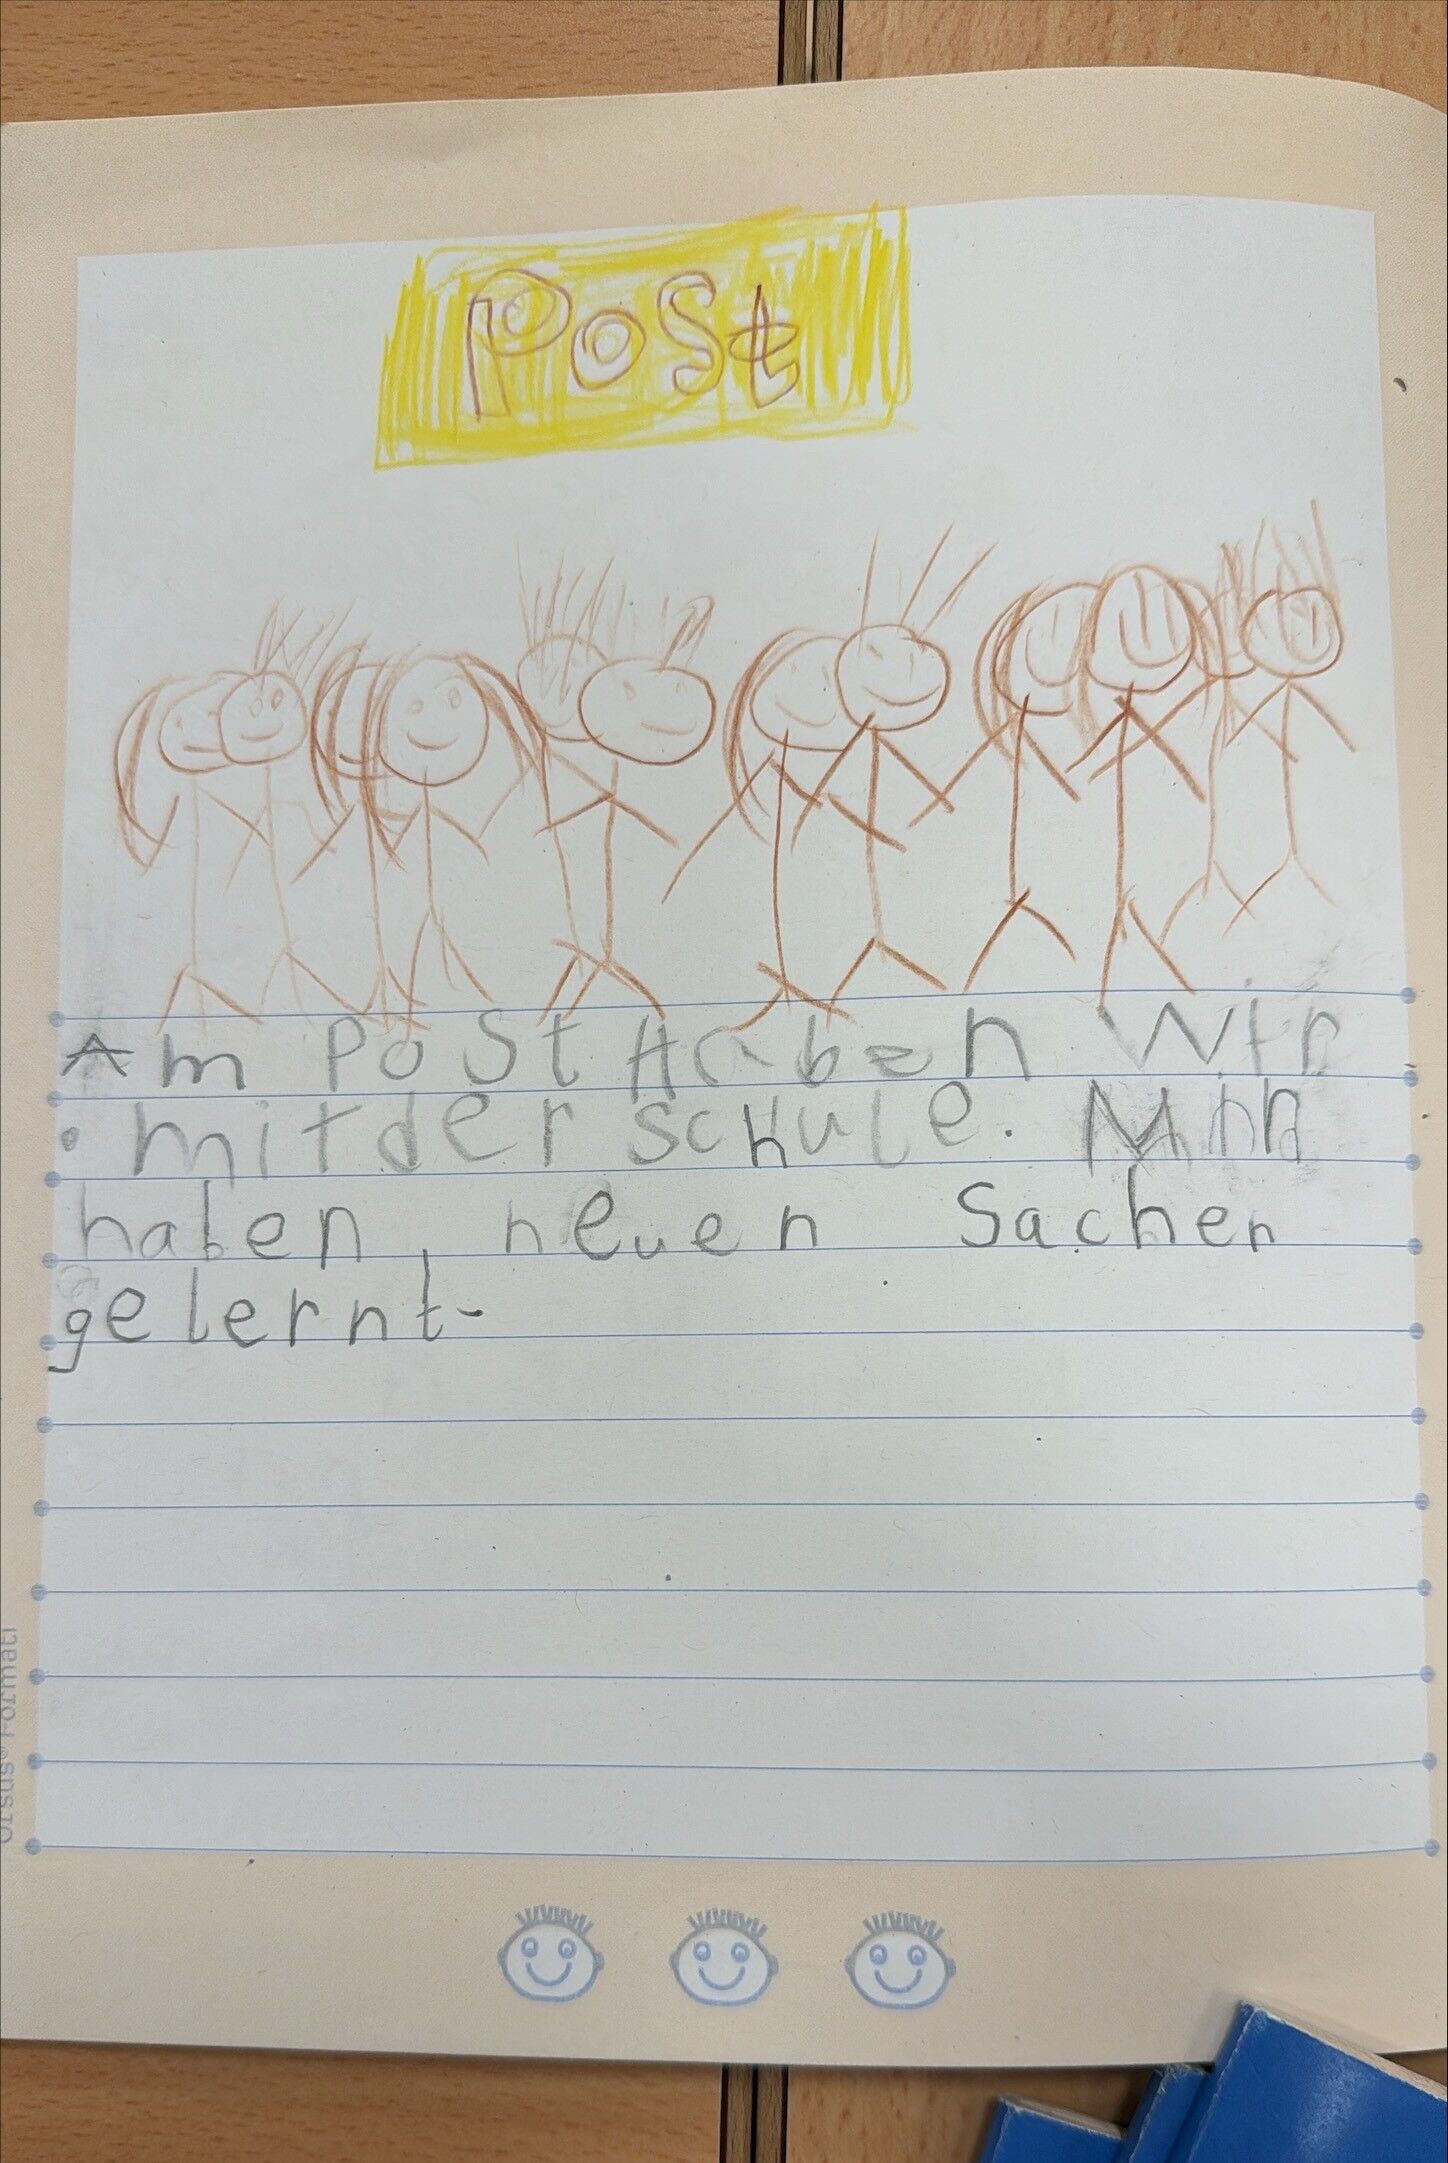 Post
Am Post Haben Wir
mit der schule. Min
haben, neuen Sachen
gelernt.
Ursus Formati